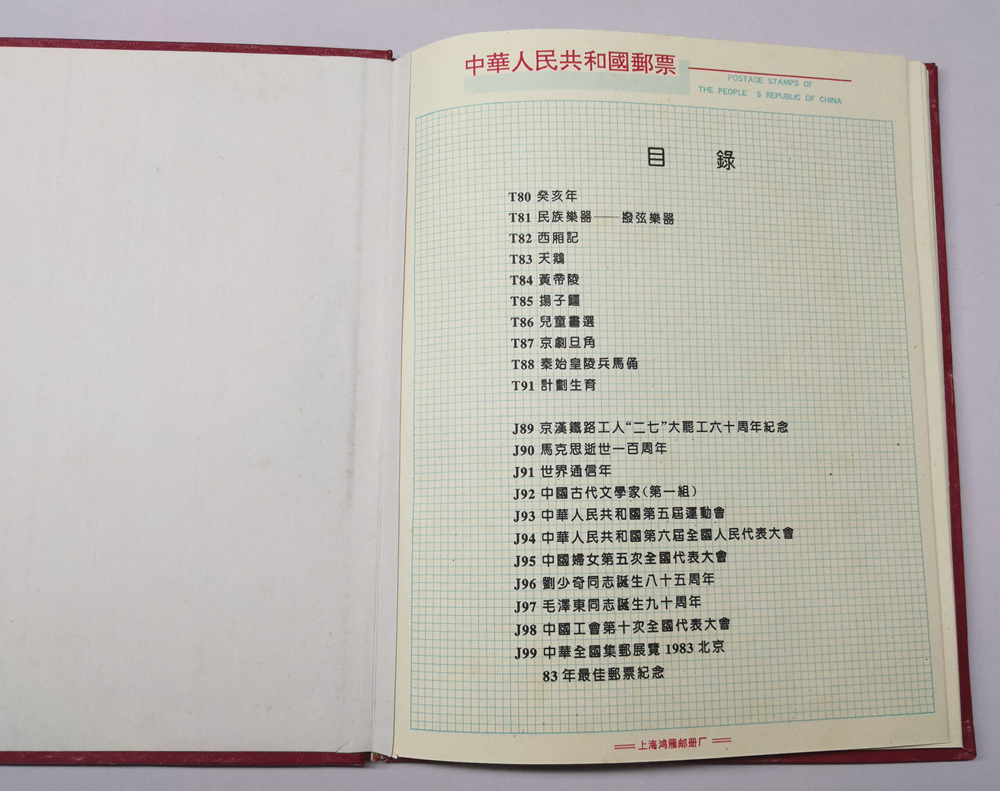 中華人民共和國郵票
POSTAGE STAMPS OF
THE PEOPLE S REPUBLIC OF CHINA
目錄
T80 癸亥年
T81 民族樂器——撥弦樂器
T82 西厢記
T83 天鵝
T84 黃帝陵
T85 揚子鱷
T86 兒童畫選
T87 京劇旦角
T88 秦始皇陵兵馬俑
T91 計劃生育
J89 京漢鐵路工人“二七”大罷工六十周年紀念
J90 馬克思逝世一百周年
J91 世界通信年
J92 中國古代文學家(第一組)
J93 中華人民共和國第五屆運動會
J94 中華人民共和國第六屆全國人民代表大會
J95 中國婦女第五次全國代表大會
J96 劉少奇同志誕生八十五周年
J97 毛澤東同志誕生九十周年
J98 中國工會第十次全國代表大會
J99 中華全國集郵展覽1983北京
83年最佳郵票紀念
上海鸿雁邮册厂